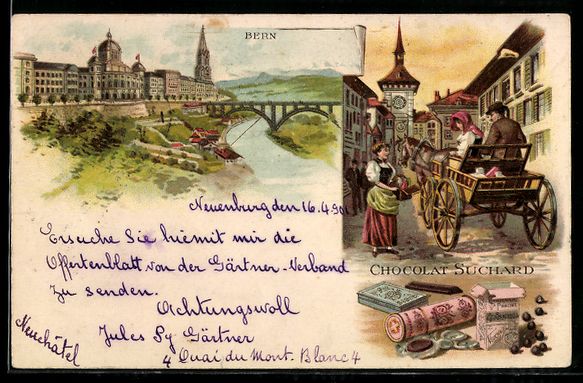 BERN
Neuenburg den 16.4.901
Ersuche Sie hiemit mir die
Offertenblatt von der Gärtner-Verband
zu senden.
Achtungsvoll
Jules Gärtner
4 Quai du Mont. Blanc 4
Neuchâtel
CHOCOLAT SUCHARD